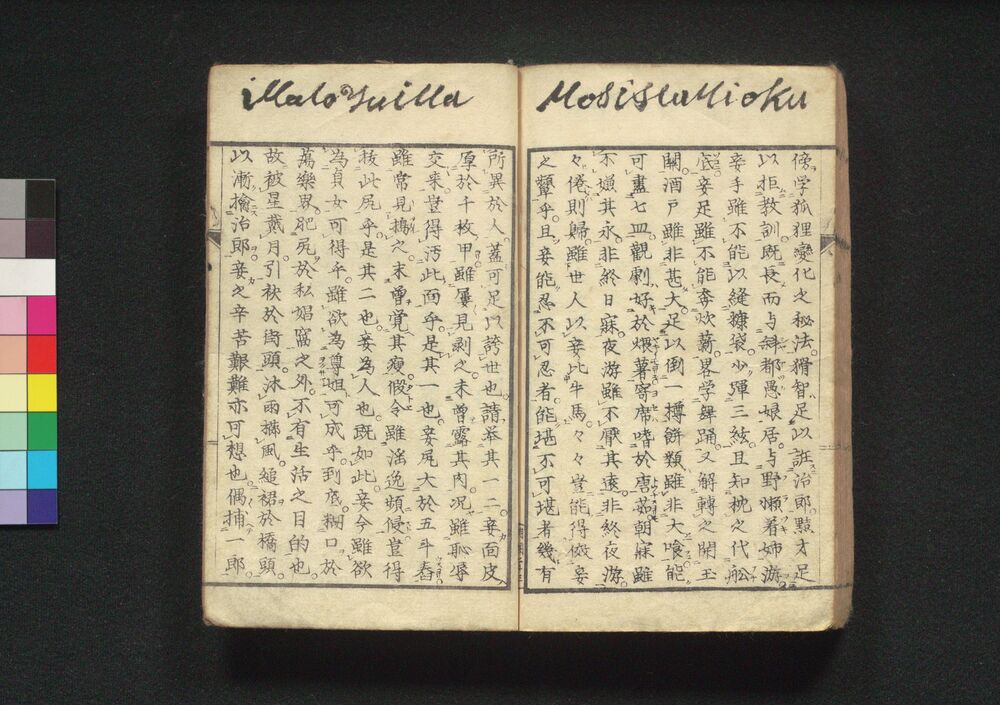 MosisHaHioku
傍学狐狸變化之秘法猾智足以誑治郎黠才足
以拒教訓既長而与斜都愚娘居与野懶看姉游
妾手雖不能以縫糠袋少彈三絃且知枕之代舩
底妾足雖不能奔炊薪畧学舞踊又解轉之関玉
關酒戸雖非甚大足以倒一樽餅類雖非大喰能
可盡七皿觀劇好於煙草寄席嗜於唐茄朝寐雖
不嫌其永非終日寐夜游雖不厭其遠非終夜游
々倦則歸雖世人以妾比牛馬々々豈能得傚妾
之顰乎且妾能忍不可忍者能堪不可堪者幾有
illaloyuilla
所異於人蓋可足以誇世也請挙其一二妾面皮
厚於千枚甲雖屢見剥之未曾露其肉况雖恥辱
交来豈得汚此面乎是其一也妾尻大於五斗舂
雖常見搗之末曾覚其痩假令雖滛逸頻侵豈得
抜此尻乎是其二也妾為人也既如此妾今雖欲
為貞女可得乎雖欲為尊姐可成乎到底糊口於
蕩樂界肥尻於私娼窩之外不有生活之目的也
故被星戴月引袂於街頭沐雨櫛風縋裙於橋頭
以漸擒治郎妾之辛苦艱難亦可想也偶捕一郎